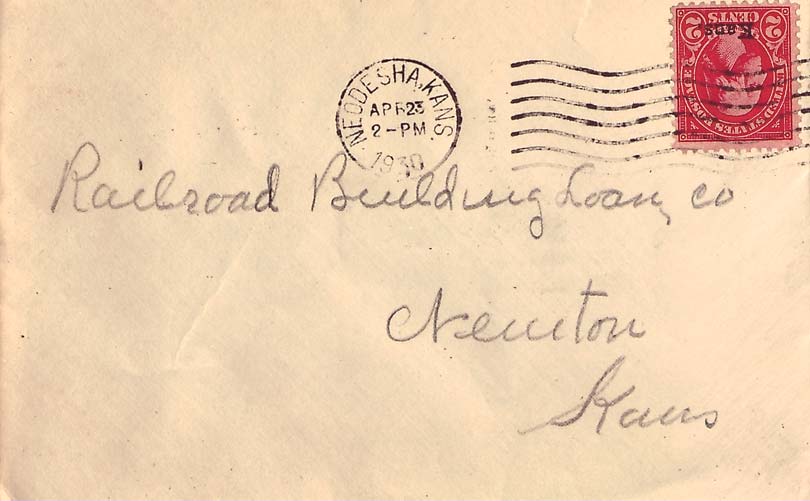 NEODESHA, KANS.
APR 23
2-PM
1930
UNITED STATES POSTAGE
2 CENTS 2
Kans.
Railroad Building Loan, co
Newton
Kans